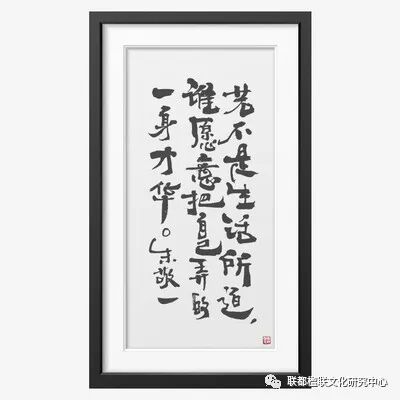 若不是生活所逼，
谁愿意把自己弄的
一身才华。朱敬一
联都楹联文化研究中心